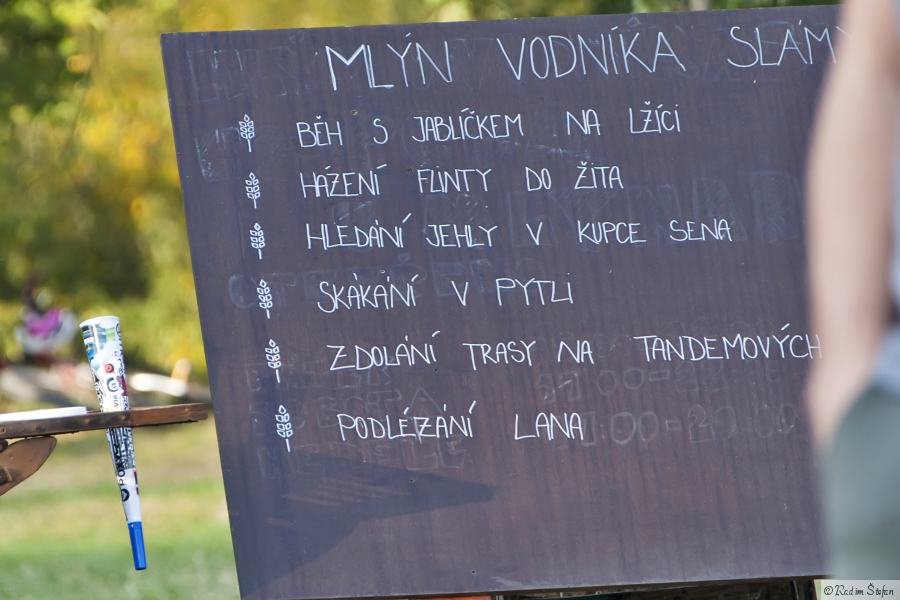 MLÝN VODNÍKA SLÁMY
BĚH S JABLÍČKEM NA LŽÍCI
HÁZENÍ FLINTY DO ŽITA
HLEDÁNÍ JEHLY V KUPCE SENA
SKÁKÁNÍ V PYTLI
ZDOLÁNÍ TRASY NA TANDEMOVÝCH
PODLÉZÁNÍ LANA
© Radim Štefan